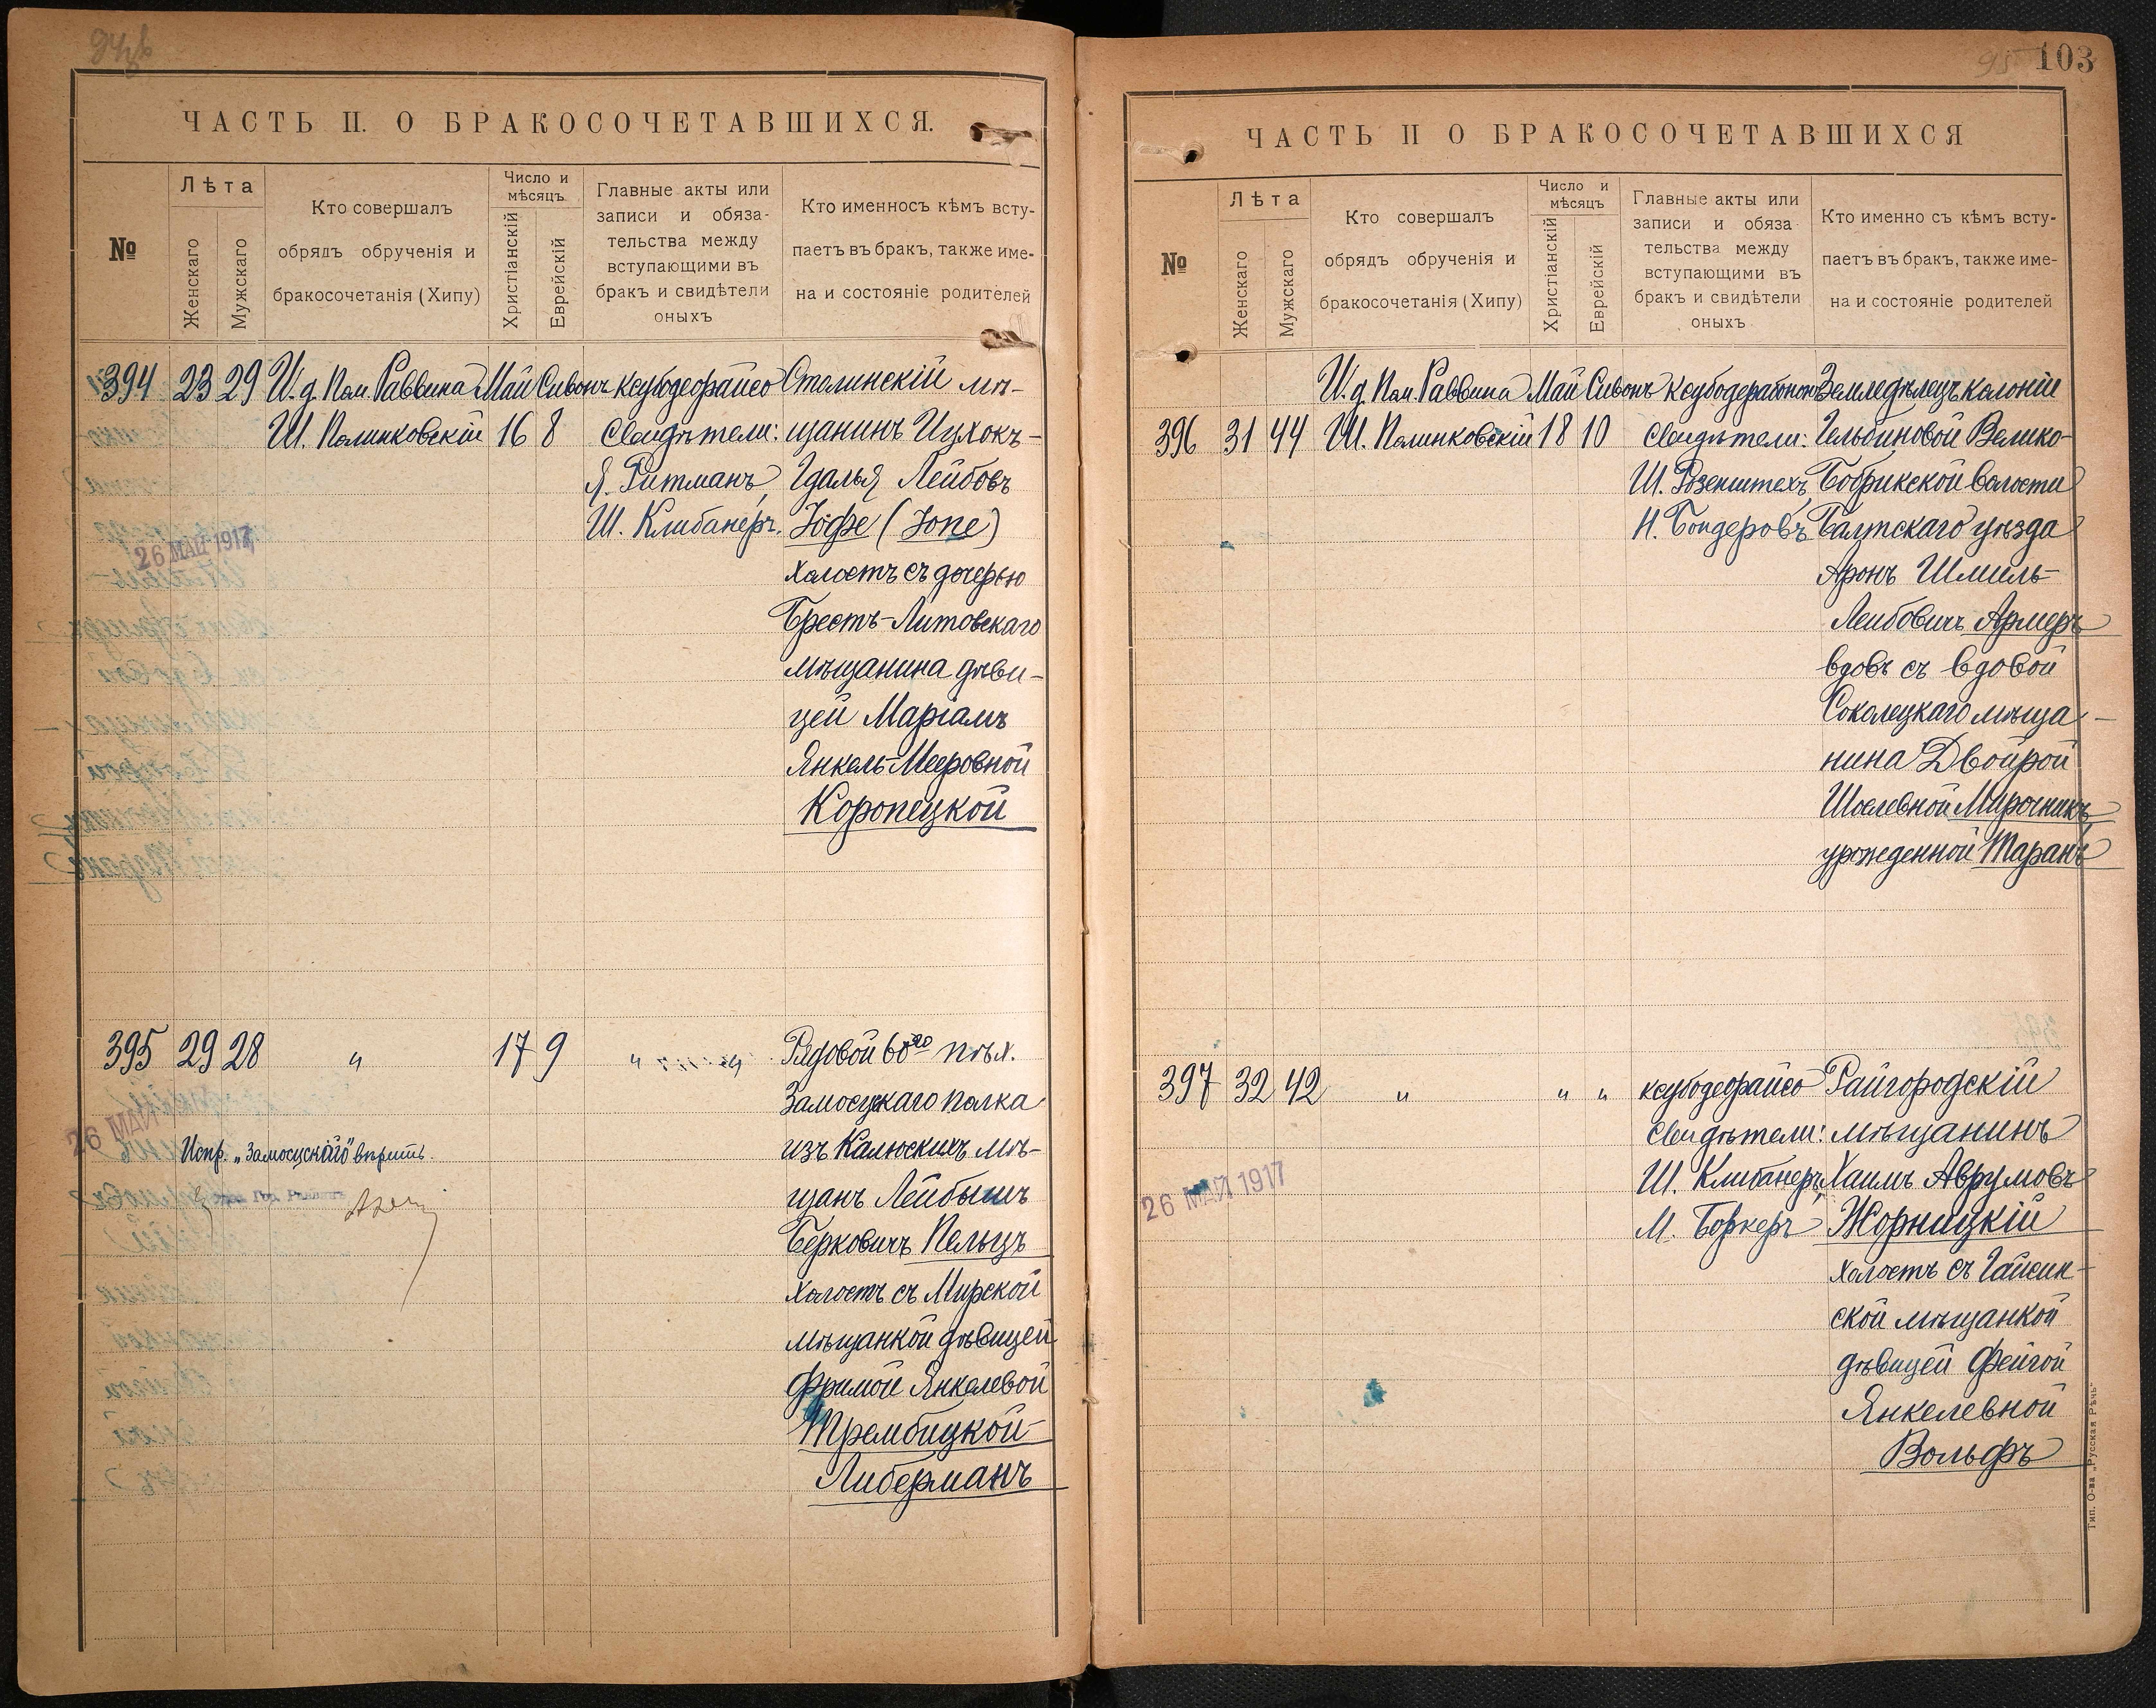 103
ЧАСТЬ II. О БРАКОСОЧЕТАВШИХСЯ.
№
Лѣта
Женскаго
Мужскаго
Кто совершалъ
обрядъ обрученія и
бракосочетанія (Хипу)
Число и
мѣсяцъ
Христіанскій
Еврейскій
Главные акты или
записи и обяза-
тельства между
вступающими въ
бракъ и свидѣтели
оныхъ
Кто именносъ кѣмъ всту-
паетъ въ бракъ, также име-
на и состояніе родителей
394 23 29 И. д. Пом. Раввина Май Сивонъ ксубодеорайсо Столинскій мѣ-
Ш. Полинковскій 16 8 Свидѣтели: щанинъ Ицхокъ-
Я. Ритманъ, Гдалья Лейбовъ
Ш. Клибанеръ. Іофе (Іопе)
26 МАЙ 1917
холостъ съ дочерью
Брестъ-Литовскаго
мѣщанина дѣви-
цей Маріамъ
Янкель-Мееровной
Коропецкой
395 29 28 " 17 9 " " Рядовой 60го пѣх.
Замосцкаго полка
26 МАЙ
Испр. „Замосцскаго" вѣрить.
изъ Калюскихъ мѣ-
щанъ Лейбышъ
Берковичъ Пельцъ
холостъ съ Мирской
мѣщанкой дѣвицей
Фримой Янкелевой
Трембицкой-
Либерманъ
ЧАСТЬ II О БРАКОСОЧЕТАВШИХСЯ
№
Лѣта
Женскаго
Мужскаго
Кто совершалъ
обрядъ обрученія и
бракосочетанія (Хипу)
Число и
мѣсяцъ
Христіанскій
Еврейскій
Главные акты или
записи и обяза
тельства между
вступающими въ
бракъ и свидѣтели
оныхъ
Кто именно съ кѣмъ всту-
паетъ въ бракъ, также име-
на и состояніе родителей
И. д. Пом. Раввина Май Сивонъ Земледѣлецъ колоніи
396 31 44 Ш. Полинковскій 18 10 Свидѣтели: Гельбиновой Велико-
Ш. Розенштехъ, Бобрикской волости
Н. Бондеровъ Балтскаго уѣзда
Аронъ Шмиль-
Лейбовичъ Армеръ
вдовъ съ вдовой
Соколецкаго мѣща-
нина Двойрой
Шоелевной Мирочникъ,
урожденной Таранъ
397 32 42 " " " ксубодеорайсо Райгородскій
Свидѣтели: мѣщанинъ
Ш. Клибанеръ, Хаимъ Аврумовъ
26 МАЙ 1917
М. Боркеръ Жорницкій
холостъ съ Гайсин-
ской мѣщанкой
дѣвицей Фейгой
Янкелевной
Вольфъ
Тип. О-ва „Русская Рѣчь"